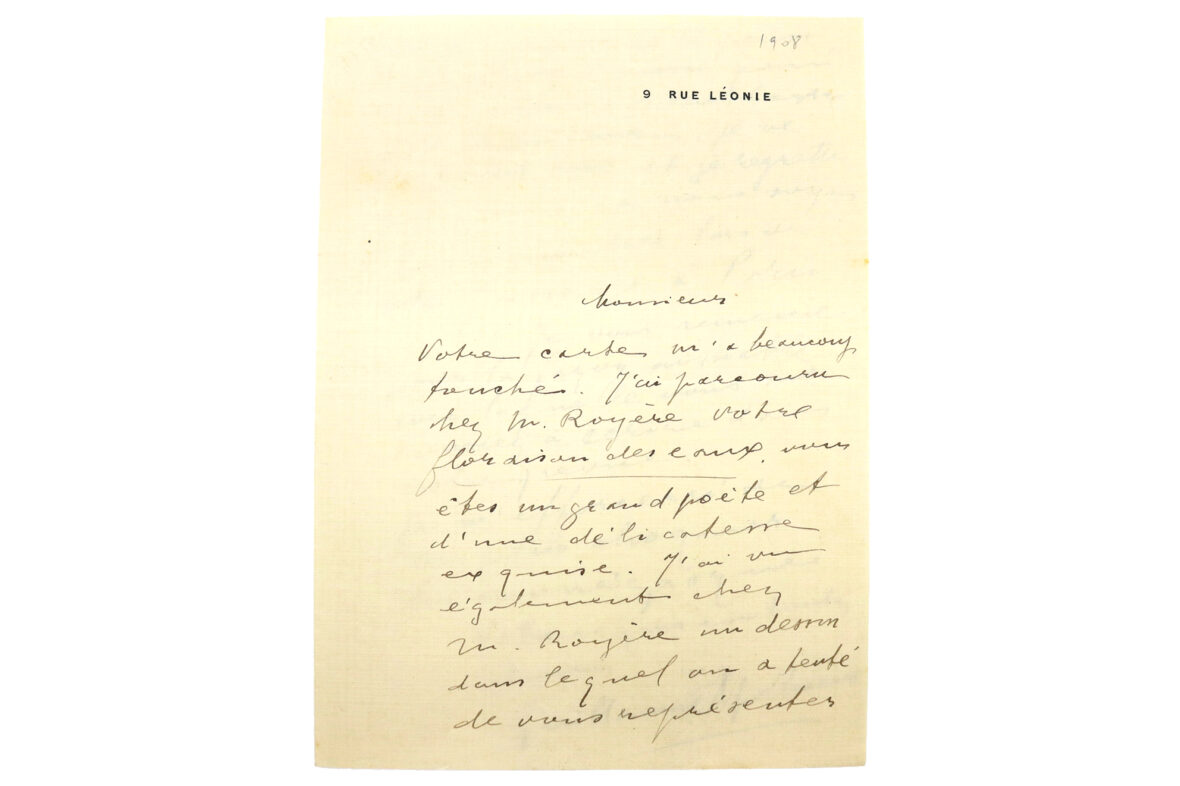 1908
9 RUE LÉONIE
Monsieur
Votre carte m'a beaucoup
touché. J'ai parcouru
chez M. Royère votre
floraison des eaux, vous
êtes un grand poète et
d'une délicatesse
exquise. J'ai vu
également chez
M. Royère un dessin
dans lequel on a tenté
de vous représenter